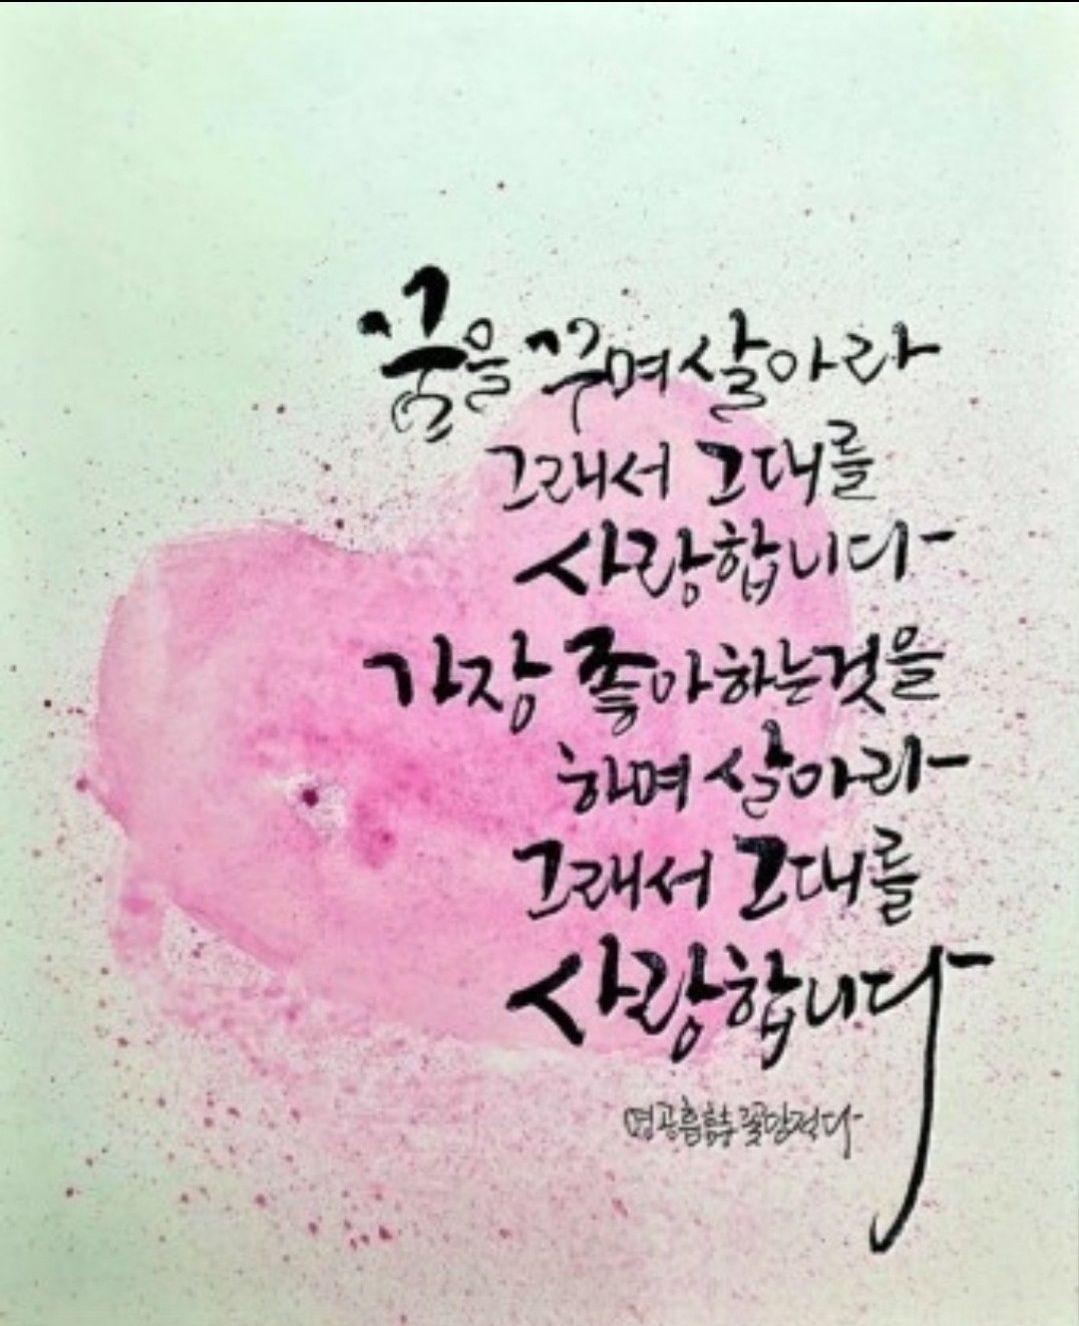 꿈을 꾸며 살아라
그래서 그대를
사랑합니다
가장 좋아하는것을
하며 살아라
그래서 그대를
사랑합니다
적다